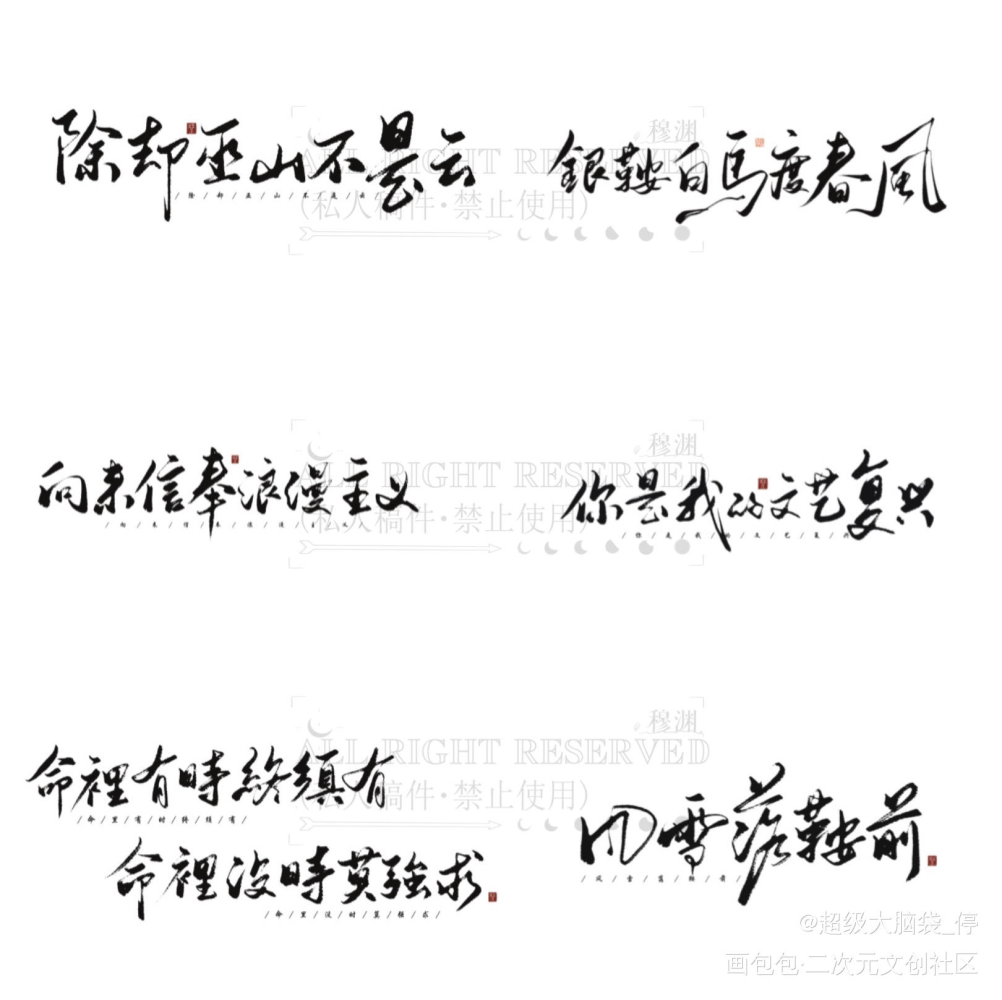 除却巫山不是云
/除/却/巫/山/不/是/云/
銀鞍白馬度春風
向来信奉浪漫主义
/向/来/信/奉/浪/漫/主/义/
你是我的文艺复兴
/你/是/我/的/文/艺/复/兴/
命裡有時終須有
/命/里/有/时/终/须/有/
命裡没時莫强求
/命/里/没/时/莫/强/求/
风雪落鞍前
/风/雪/落/鞍/前/
穆渊
ALL RIGHT RESERVED
(私人稿件·禁止使用)
穆渊
ALL RIGHT RESERVED
(私人稿件·禁止使用)
穆渊
ALL RIGHT RESERVED
(私人稿件·禁止使用)
@超级大脑袋_停
画包包·二次元文创社区